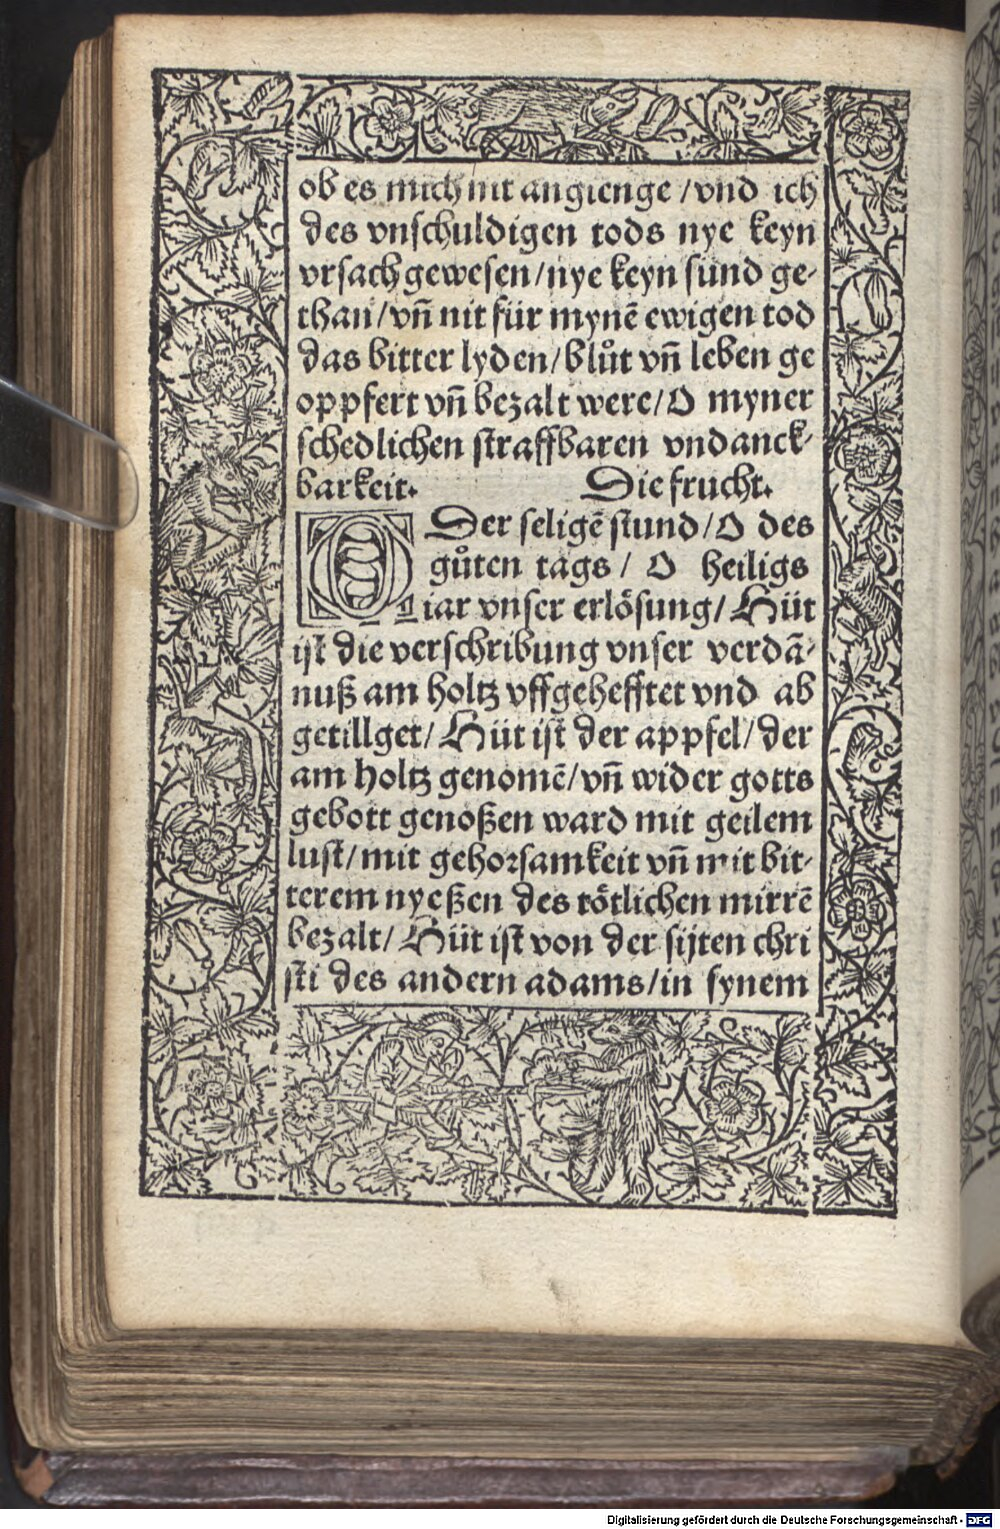 ob es mich nit angienge /vnd ich
des vnschuldigen tods nye keyn
vrsach gewesen/nye keyn sund ge-
than/vñ nit für mynē ewigen tod
das bitter lyden/blůt vñ leben ge
oppfert vñ bezalt were/O myner
schedlichen straffbaren vndanck-
barkeit. Die frucht.
O Der seligē stund/O des
gůten tags / O heiligs
iar vnser erlösung/Hüt
ist die verschribung vnser verdā-
nuß am holtz vffgehefftet vnd ab
getillget/Hüt ist der appfel/der
am holtz genomē/vñ wider gotts
gebott genoßen ward mit geilem
lust/mit gehorsamkeit vñ mit bit-
terem nyeßen des tötlichen mirrē
bezalt/Hüt ist von der sijten chri
sti des andern adams/in synem
Digitalisierung gefördert durch die Deutsche Forschungsgemeinschaft - DFG